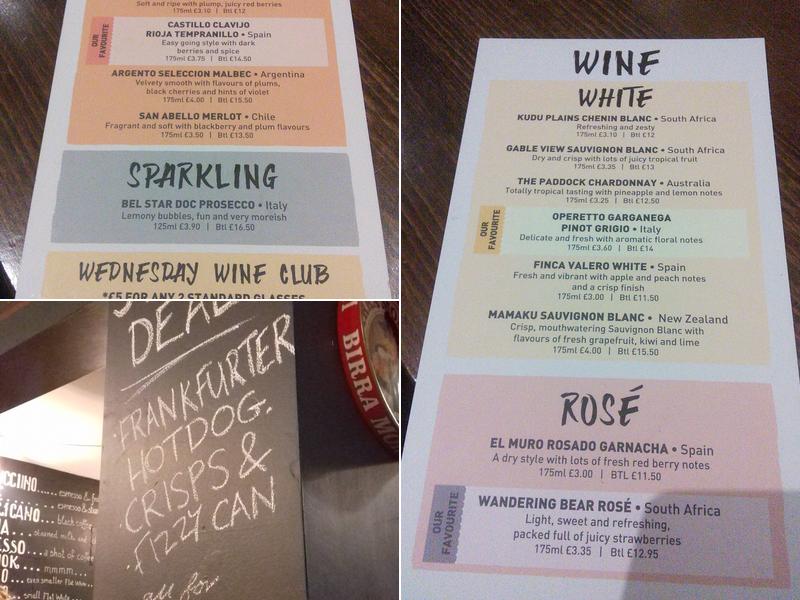 Soft and ripe with plump, juicy red berries
175ml £3.10 | Btl £12
OUR
FAVOURITE
CASTILLO CLAVIJO
RIOJA TEMPRANILLO • Spain
Easy going style with dark
berries and spice
175ml £3.75 | Btl £14.50
ARGENTO SELECCION MALBEC • Argentina
Velvety smooth with flavours of plums,
black cherries and hints of violet
175ml £4.00 | Btl £15.50
SAN ABELLO MERLOT • Chile
Fragrant and soft with blackberry and plum flavours
175ml £3.50 | Btl £13.50
SPARKLING
BEL STAR DOC PROSECCO • Italy
Lemony bubbles, fun and very moreish
125ml £3.90 | Btl £16.50
WEDNESDAY WINE CLUB
*£5 FOR ANY 2 STANDARD GLASSES
WINE
WHITE
KUDU PLAINS CHENIN BLANC • South Africa
Refreshing and zesty
175ml £3.10 | Btl £12
GABLE VIEW SAUVIGNON BLANC • South Africa
Dry and crisp with lots of juicy tropical fruit
175ml £3.35 | Btl £13
THE PADDOCK CHARDONNAY • Australia
Totally tropical tasting with pineapple and lemon notes
175ml £3.25 | Btl £12.50
OUR
FAVOURITE
OPERETTO GARGANEGA
PINOT GRIGIO • Italy
Delicate and fresh with aromatic floral notes
175ml £3.60 | Btl £14
FINCA VALERO WHITE • Spain
Fresh and vibrant with apple and peach notes
and a crisp finish
175ml £3.00 | Btl £11.50
MAMAKU SAUVIGNON BLANC • New Zealand
Crisp, mouthwatering Sauvignon Blanc with
flavours of fresh grapefruit, kiwi and lime
175ml £4.00 | Btl £15.50
ROSÉ
EL MURO ROSADO GARNACHA • Spain
A dry style with lots of fresh red berry notes
175ml £3.00 | BTL £11.50
OUR
FAVOURITE
WANDERING BEAR ROSÉ • South Africa
Light, sweet and refreshing,
packed full of juicy strawberries
175ml £3.35 | Btl £12.95
DEAL
•FRANKFURTER
HOTDOG.
CRISPS &
•FIZZY CAN
all for
BIRRA MO
UCCIINO.....
black coffee
steamed milk and
ESSO ... a shot of coffee
mmmm...
even smaller Flat White
small Flat White